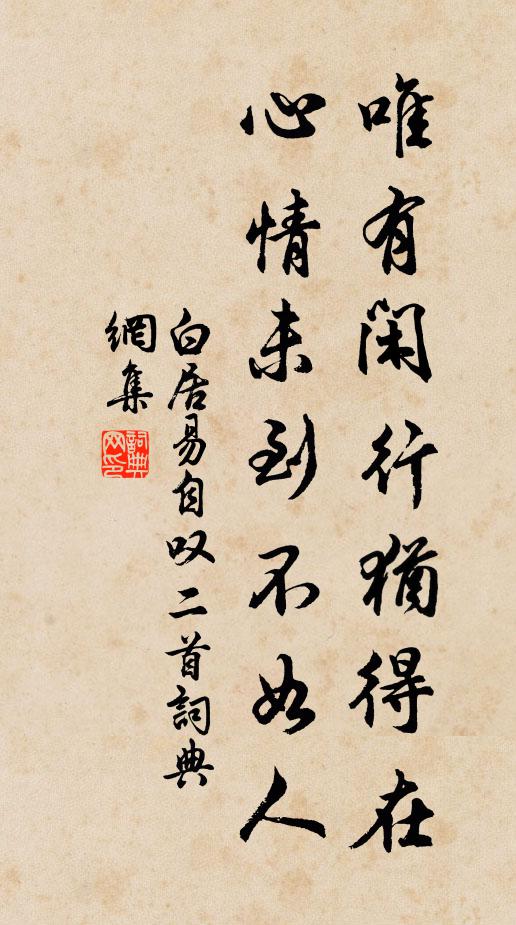 唯有閑行猶得在
心情未到不如人
白居易自叹二首詞典
網集
詞典
网印